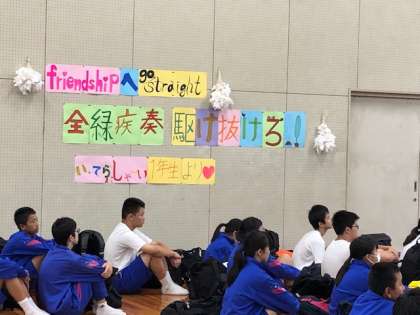 friendshipへ go straight
全緑疾奏 駆け抜けろ!!
いってらっしゃい 1年生より♥